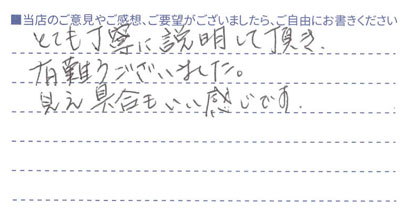 ■当店のご意見やご感想、ご要望がございましたら、ご自由にお書きください
とても丁寧に説明して頂き、
有難うございました。
見え具合もいい感じです。